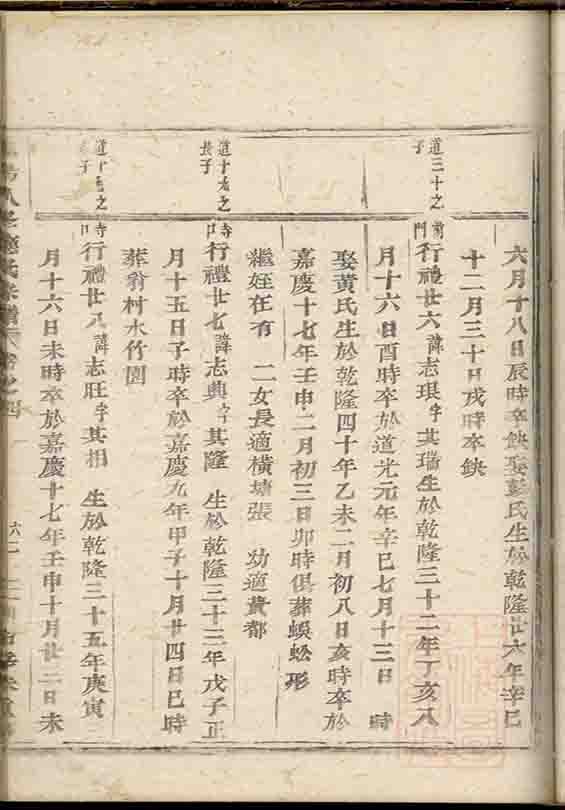 六月十八日辰時卒缺娶彭氏生於乾隆廿六年辛巳
十二月三十日戌時卒缺
道三十之
子
前門行禮廿六諱志珢字其瑞生於乾隆三十二年丁亥八
月十六日酉時卒於道光元年辛巳七月十三日 時
娶黃氏生於乾隆四十年乙未二月初八日亥時卒於
嘉慶十七年壬申二月初三日卯時俱葬蜈蚣形
繼姪在有 二女長適橫塘張 幼適黃都
道十九之
長子
行禮廿七諱志典字其隆 生於乾隆三十三年戊子正
月十五日子時卒於嘉慶九年甲子十月廿四日巳時
葬翁村水竹園
之
子
行禮廿八諱志旺字其相 生於乾隆三十五年庚寅
月十六日未時卒於嘉慶十七年壬申十月廿二日未
氏宗譜 卷之四